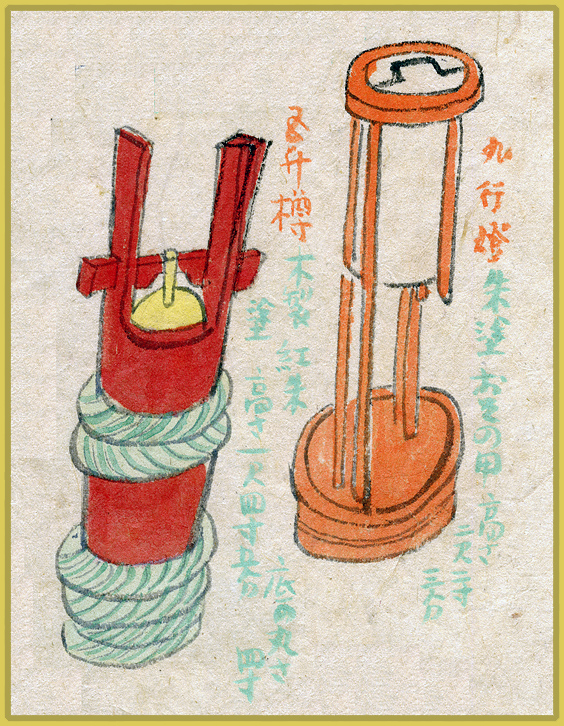 丸行燈 朱塗 の用 高さ
二尺二寸
三分
五升樽 木製 紅朱
塗 高さ一尺四寸五分
底の丸さ
四寸